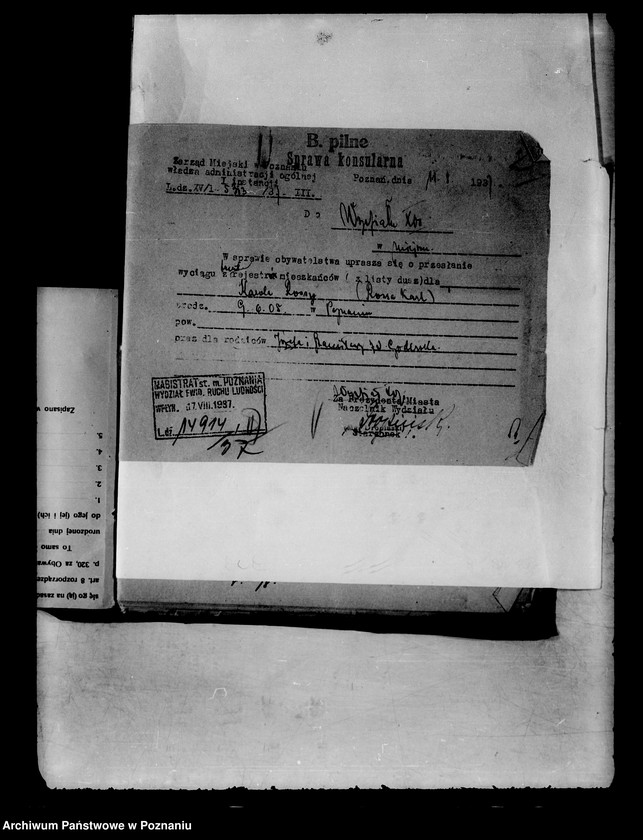 B. pilne
Sprawa konsularna
Zarząd Miejski w Poznaniu
władza administracji ogólnej
I instancji
L.dz. XV/1- /37 III.
Poznań, dnia 11. 8 1937.
Do
Wydziału
w miejscu
W sprawie obywatelstwa uprasza się o przesłanie
wyciągu z rejestru mieszkańców ( z listy dusz) dla
Karola (Rossa Karl)
urodz. 9. 6. 08. w Poznaniu
pow.
przez dla rodziców Józefa i Stanisławy
MAGISTRAT st. m. POZNANIA
WYDZIAŁ EWID. RUCHU LUDNOŚCI
WPŁYN. 17. VIII. 1937.
L. dz. 14914
37
Za Prezydenta Miasta
Naczelnik Wydziału
Zapisano w
5.
4.
3.
2.
1.
do jego (jej i ich)
urodzonej dnia
To samo
p. 320, za Obywa
art. 8 rozporządze
się go (ją) na zasad
Archiwum Państwowe w Poznaniu